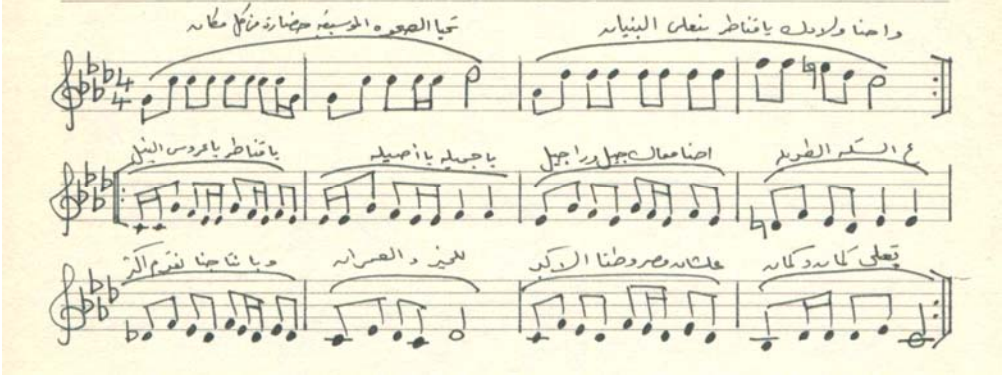 4 4 تحيا الصحوه الموسيقيه حضارة من كل مكان واحنا ولادك يا قناطر بنعلى البنيان
يا قناطر يا عروس النيل يا جميله يا أصيله احنا معاك جيل ورا جيل ع السكه الطويله
وبانتاجنا اكتر للخير والعمران علشان مصر وطننا الاكبر تعلى كمان وكمان